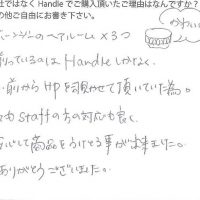 社ではなく Handle でご購入頂いたご理由はなんですか？
の他ご自由にお書き下さい。
かわいい
ベアルーム×3つ
っているのは Handle しかなく、
前からHPを頂かせて頂いていた為。
も Staff の方の対応も良く
心して商品をうけとる事が出来ました。
ありがとうございました。